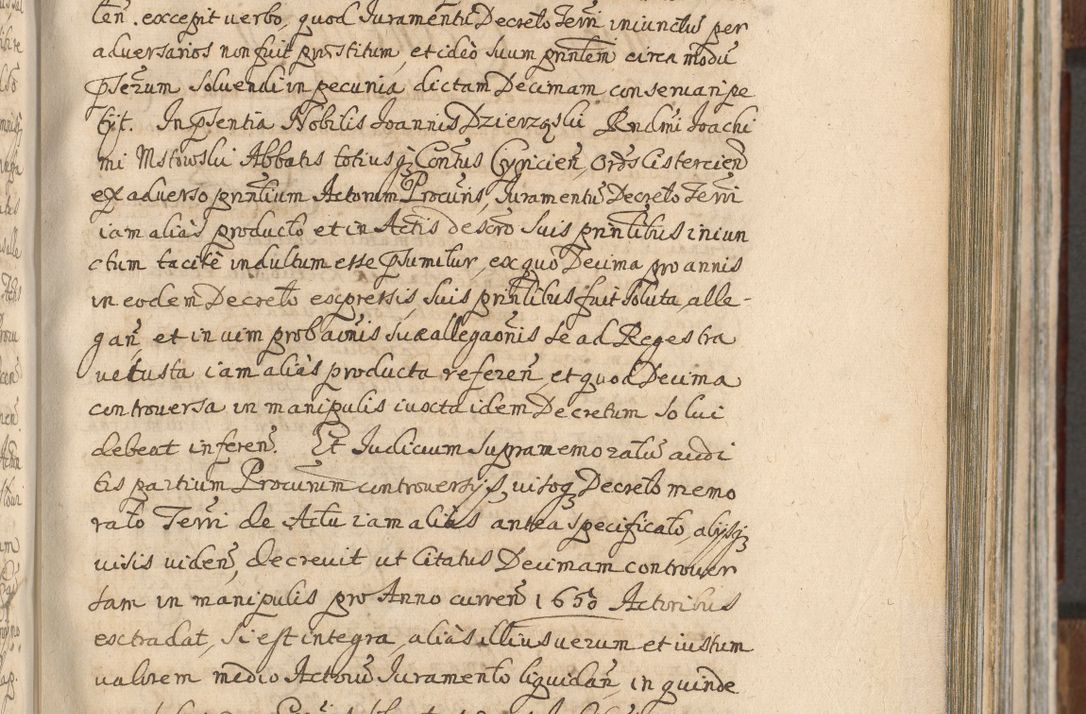 ten. exccepit verbo, quod Iuramentũ Decreto Terrĩ iniunctũ per
aduersarios non fuit pręstitum, et ideò suum prñtem circa modũ
Pserum soluendi in pecunia dictam Decimam conseruari pe
tÿt. In Psentia Nobilis Ioannis Dzierząski Rndmi Ioachi
mi Mstowski Abbatis totiusq; Contus Cyricień, Ords Cistercień
ex aduerso prñtium Actorum Procuris, Iuramentũ Decreto Terrĩ
iam alias producto et in Actis descro suis prñtibus iniun
ctum tacitè indultum esse Psumitur, ex quo Decima pro annis
in eodem Decreto expressis, suis prñtibus fuit soluta, alle-
gań, et in vim probaõnis suæ allegaõnis se ad Regestra
vetusta iam alias producta refereń, et quod Decima
controuersa in manipulis iuxta idem Decretum solui
debeat infereń. Et Iudicium supramemoratũ audi
tis partium Procurum controuersÿs, visoq; Decreto memo
rato Terrĩ de Actu iam alias antea specificato, alÿsq;
visis videń, decreuit ut Citatus Decimam controuer
sam in manipulis pro Anno curreń 1650 Actoribus
extradat, si est integra, aliàs illius verum et iustum
valorem medio Actorũ Iuramento liquidań, in quinde